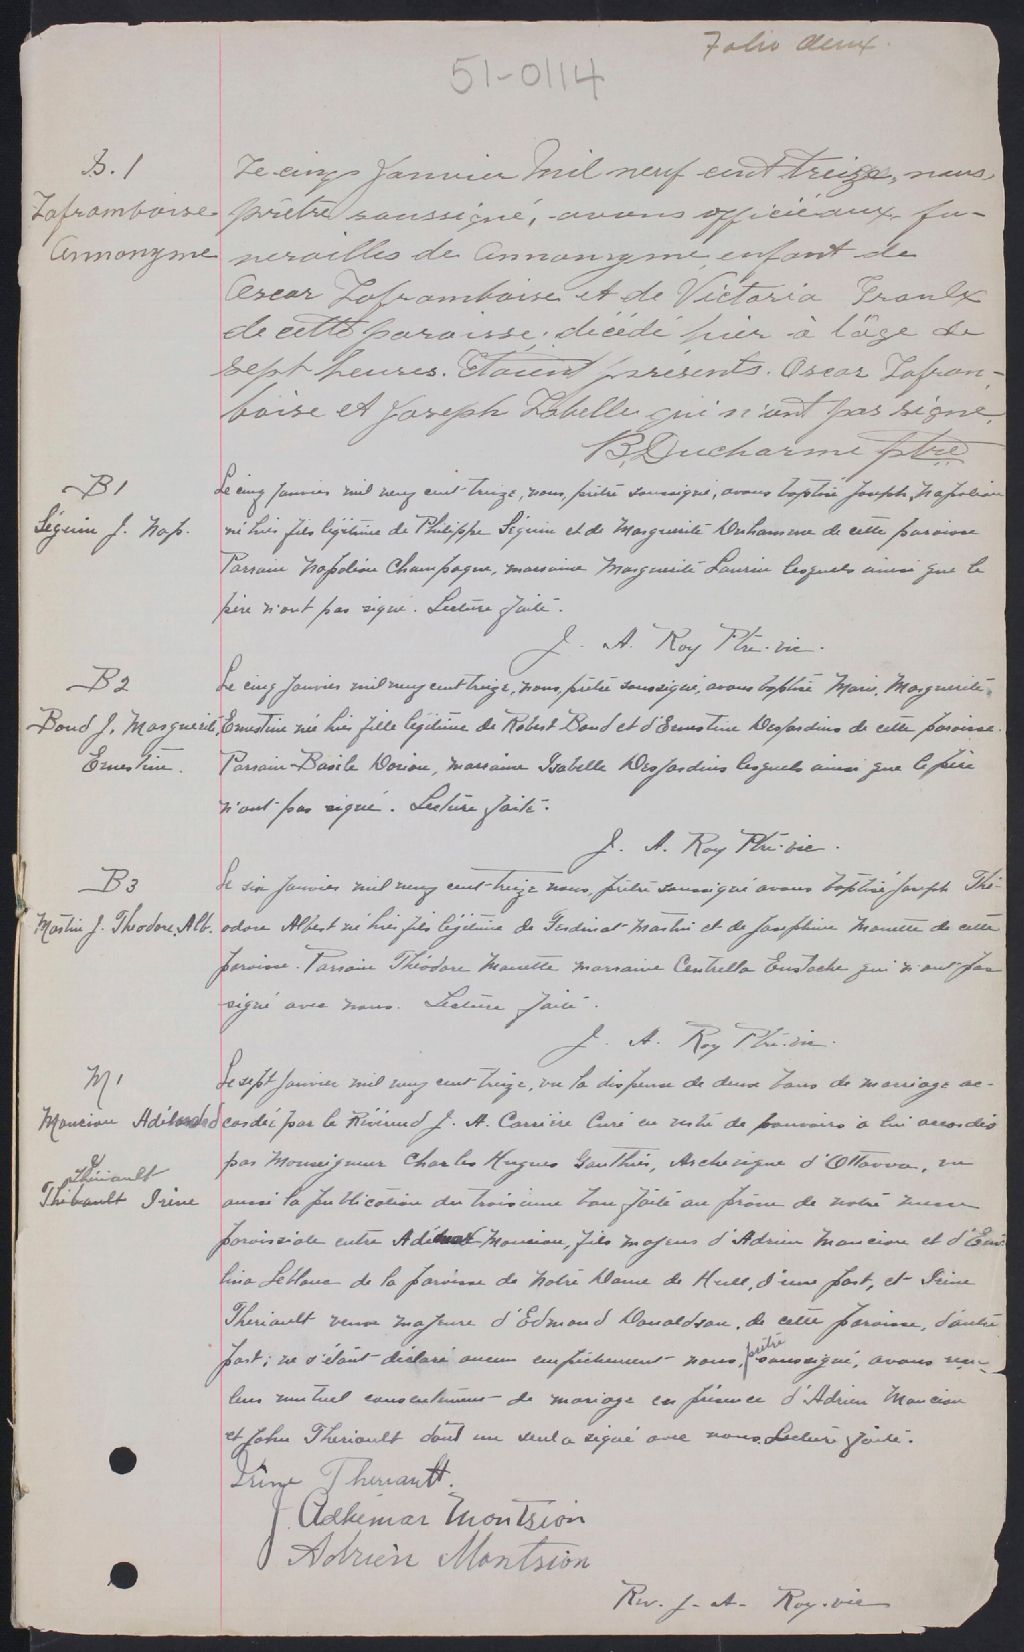 Folio deux.
51-0114
S. 1
Laframboise
Annonyme
Le cinq Janvier Mil neuf cent treize, nous,
prêtre soussigné, avons officié aux fu-
nerailles de Annonyme enfant de
Oscar Laframboise et de Victoria
de cette paroisse, décédé hier à l'âge de
sept heures. Etaient présents. Oscar Lafram-
boise et Joseph Labelle qui n'ont pas signé.
B. Ducharme ptre
B1
Séguin J. Nap.
Le cinq Janvier mil neuf cent treize, nous, prêtre soussigné, avons baptisé Joseph, Napoléon
né hier fils légitime de Philippe Séguin et de Marguerite Duhamme de cette paroisse
Parrain Napoléon Champagne, marraine Marguerite Laurin lesquels ainsi que le
père n'ont pas signé. Lecture faite.
J. A. Roy Ptre. vic.
B2
Bond J. Marguerite,
Ernestine.
Le cinq Janvier mil neuf cent treize, nous, prêtre soussigné, avons baptisé Marie, Marguerite,
Ernestine née hier fille légitime de Robert Bond et d'Ernestine Desjardins de cette paroisse.
Parrain Basile Dorion, marraine Isabelle Desjardins lesquels ainsi que le père
n'ont pas signé. Lecture faite.
J. A. Roy Ptre. vic.
B3
Martin J. Theodore, Alb.
Le six Janvier mil neuf cent treize nous, prêtre soussigné avons baptisé Joseph Thé-
odore Albert né hier fils légitime de Ferdinat Martin et de Josephine Monette de cette
paroisse. Parrain Théodore Monette marraine Centrella Eustache qui n'ont pas
signé avec nous. Lecture faite.
J. A. Roy Ptre. vic.
M1
Moncion
&
Thériault
Thibault Irène
Le sept Janvier mil neuf cent treize, vu la dispense de deux bans de mariage ac-
cordée par le Révérend J. A. Carrière Curé en vertu de pouvoirs à lui accordés
par Monseigneur Charles Hugues Gauthier, Archevêque d'Ottawa, vu
aussi la publication du troisième ban faite au prône de notre messe
paroissiale entre Moncion, fils majeur d'Adrien Moncion et d'Emé-
lina Leblanc de la paroisse de Notre Dame de Hull, d'une part, et Irène
Theriault veuve majeure d'Edmond Donaldson, de cette paroisse, d'autre
part; ne s'étant déclaré aucun empêchement nous, prêtre soussigné, avons reçu
leur mutuel consentement de mariage en présence d'Adrien Moncion
et John Theriault dont un seul a signé avec nous. Lecture faite.
Irène Theriault.
J. Adhémar Montsion
Adrien Montsion
Rev. J. A. Roy. vic